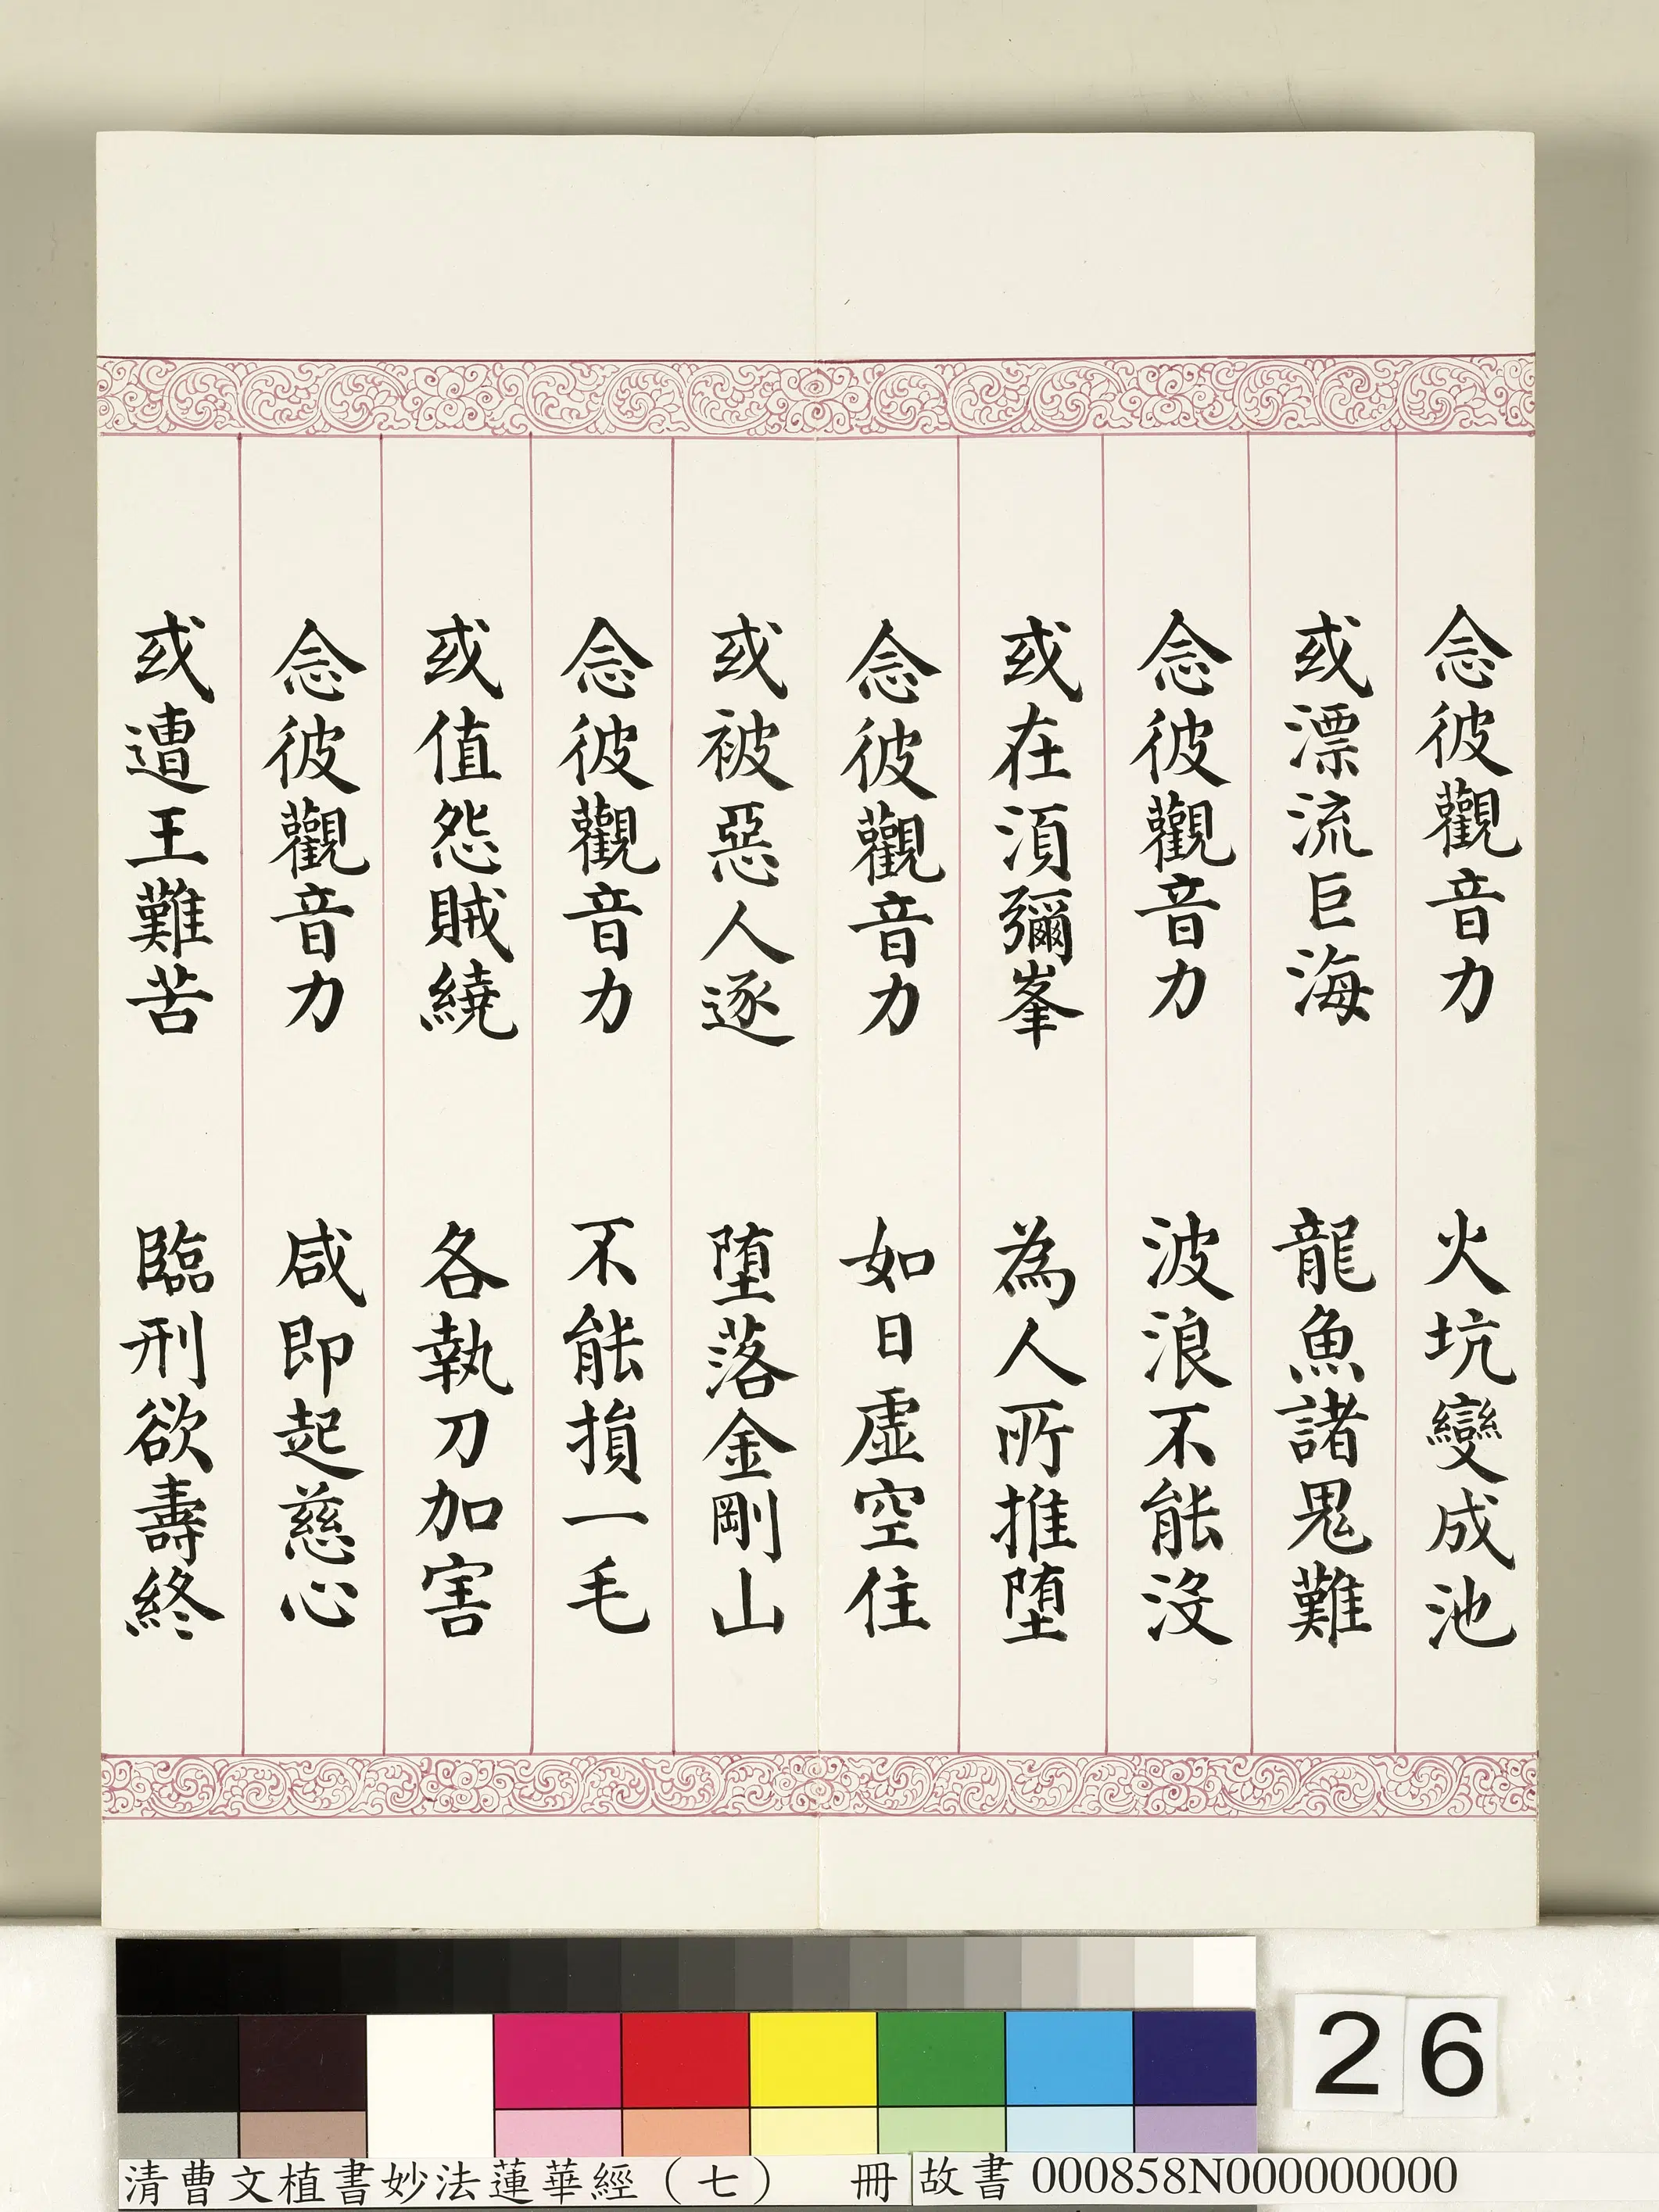 念彼觀音力　火坑變成池
或漂流巨海　龍魚諸鬼難
念彼觀音力　波浪不能没
或在須彌峯　為人所推墮
念彼觀音力　如日虛空住
或被惡人逐　墮落金剛山
念彼觀音力　不能損一毛
或值怨賊繞　各執刀加害
念彼觀音力　咸即起慈心
或遭王難苦　臨刑欲壽終
26
清曹文植書妙法蓮華經（七）　冊
故書 000858N000000000